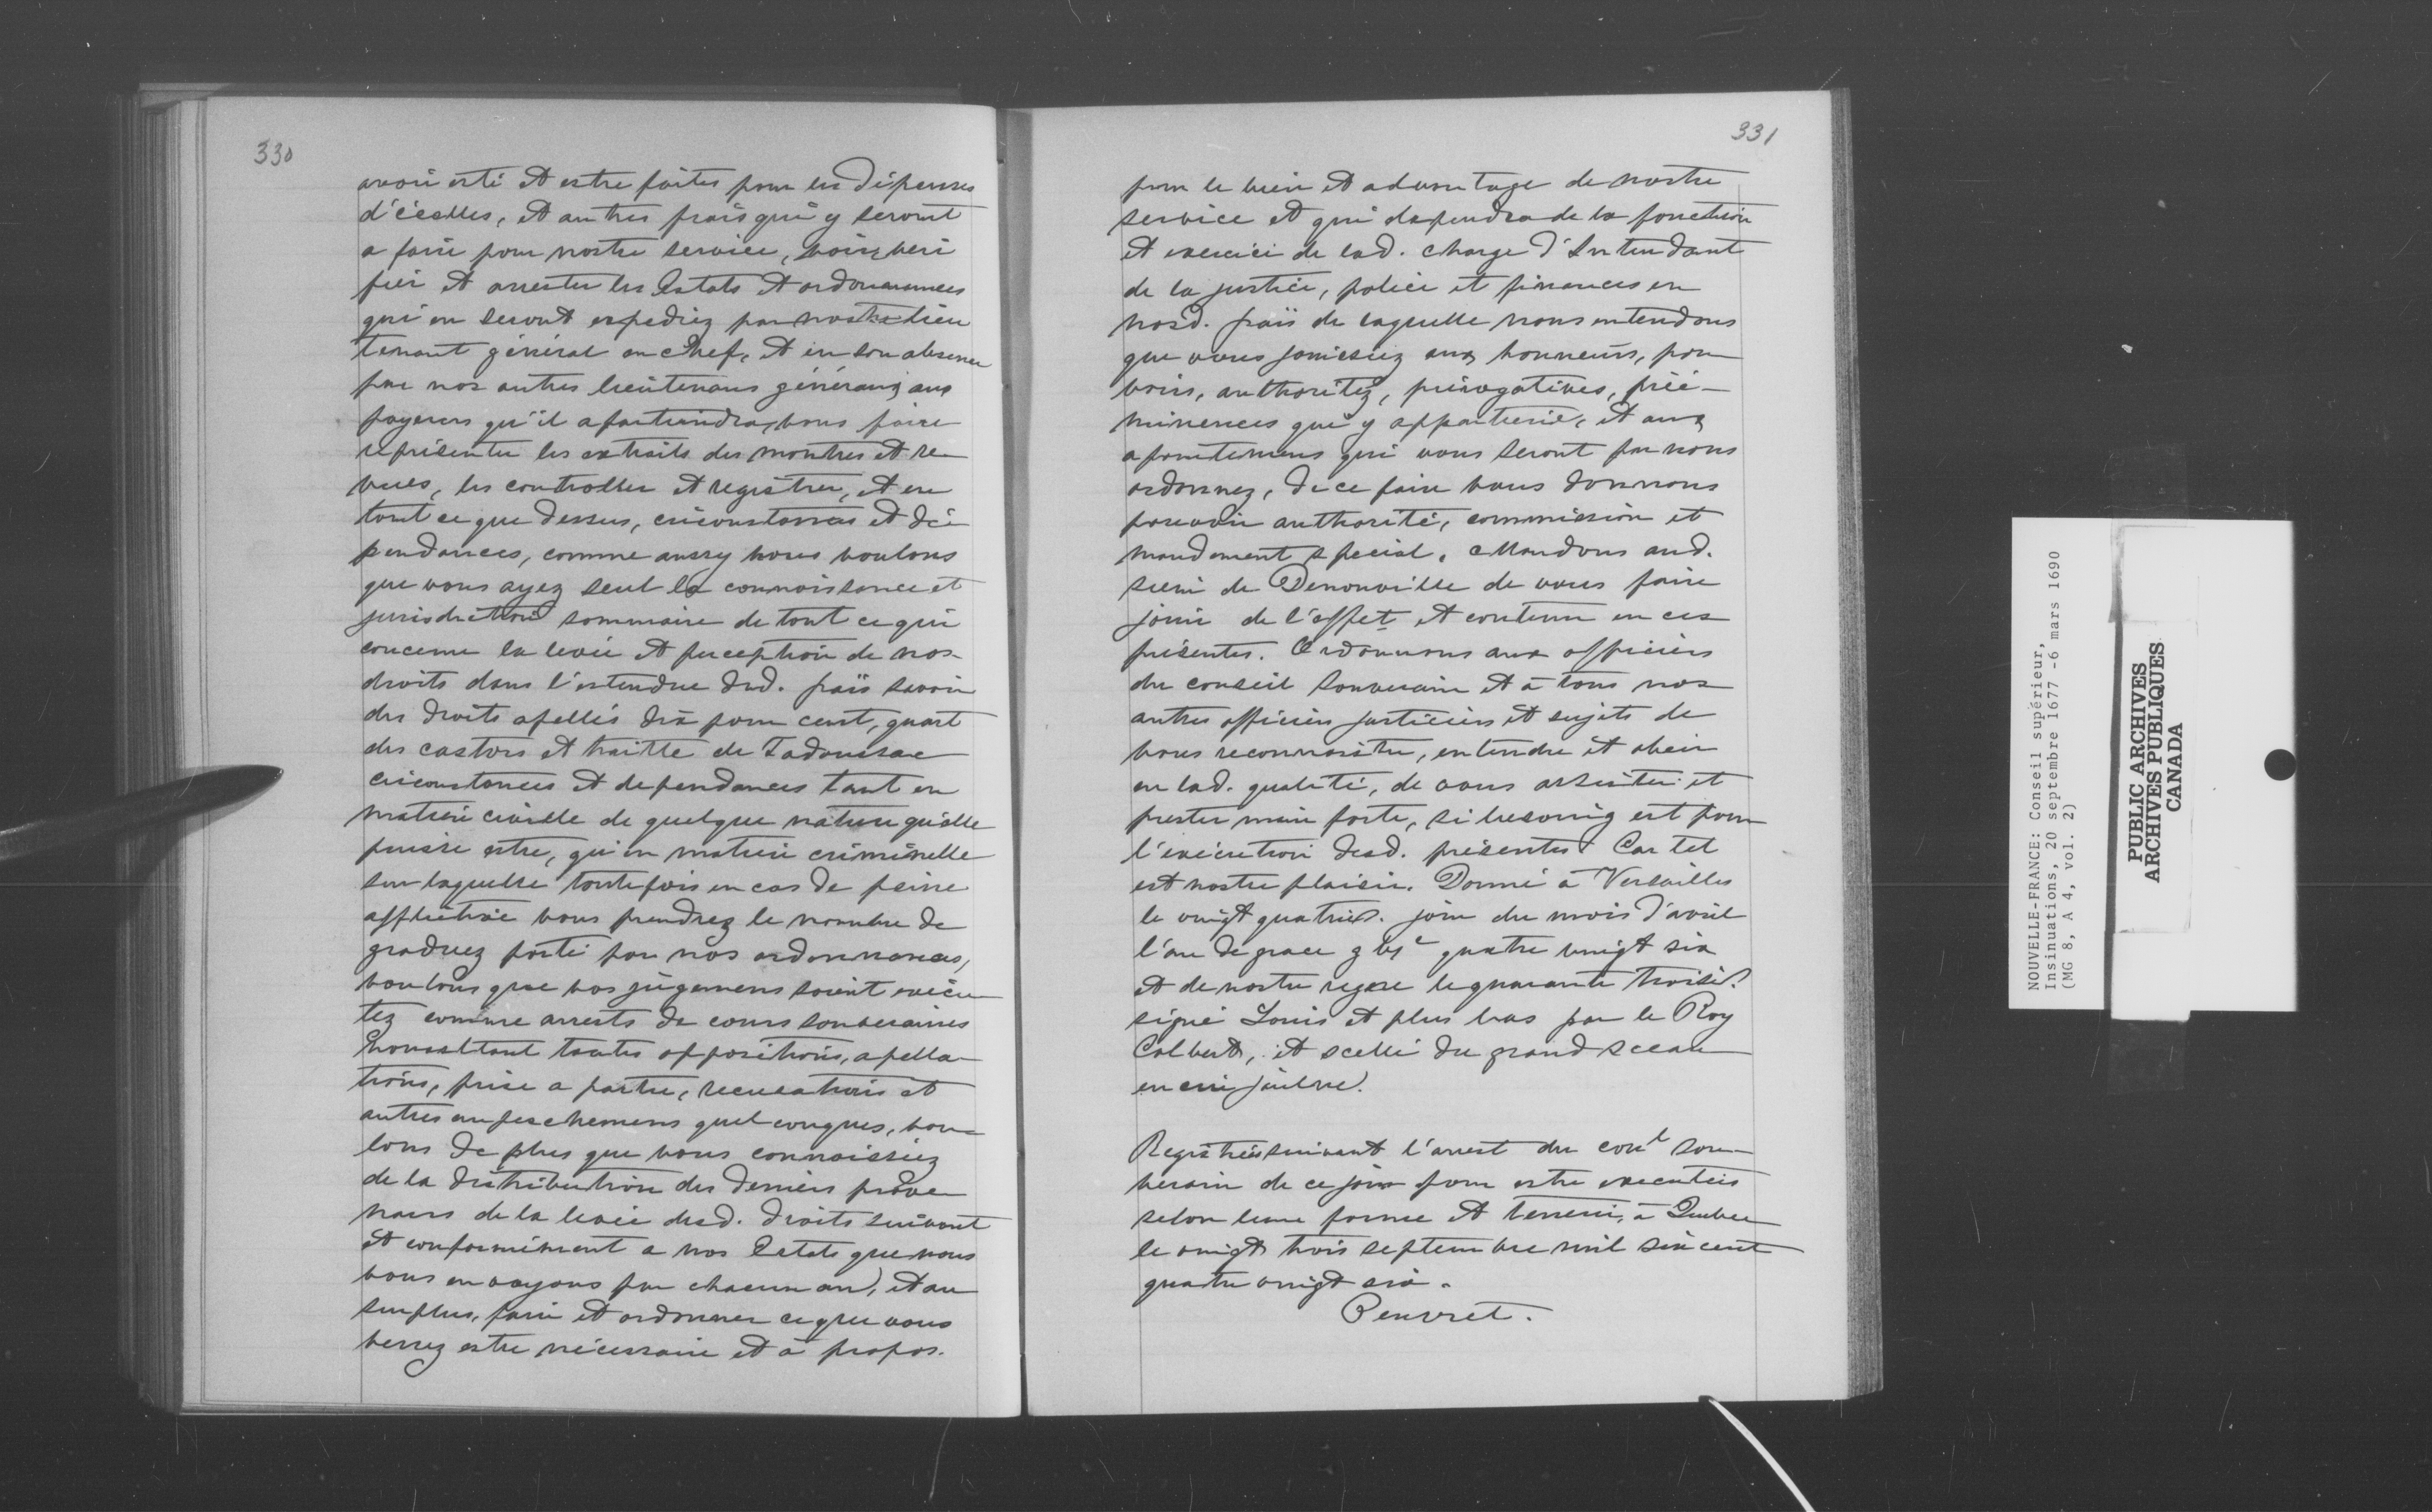 330
avoir esté et estre faites pour les dépenses
d'icelles, et autres frais qui y seront
a faire pour nostre service, voir, veri
fier et arrester les Estats et ordonnances
qui en seront expediez par nostre lieu
tenant général en chef, et en son absence
par nos autres lieutenans généraux aux
payeurs qu'il apartiendra, vous faire
réprésenter les extraits des montres et re
vues, les controller et registrer, et en
tout ce que dessus, circonstances et dé
pendances, comme aussy nous voulons
que vous ayez seul la connoissance et
jurisdiction sommaire de tout ce qui
concerne la levée et perception de nos
droits dans l'estendue dud. païs savoir
des droits apellés dix pour cent, quart
des castors et traitte de Tadoussac
circonstances et dependances tant en
matiere civille de quelque nature qu'elle
puisse estre, qu'en matiere criminelle
sur laquelle toutefois en cas de peine
afflictive vous prendrez le nombre de
graduez porté par nos ordonnances,
voulons que vos jugemens soient execu
tez comme arrests de cours souveraines
nonobstant toutes oppositions, apella
tions, prise a partie, recusations et
autres empeschemens quelconques, vou
lons de plus que vous connoissiez
de la distribution des deniers prove
nans de la levée desd. droits suivant
et conformément a nos Estats que nous
vous envoyons par chacun an, et au
surplus, faire et ordonner ce que vous
verrez estre nécessaire et à propos.
331
pour le bien et advantage de nostre
service et qui dependra de la fonction
et exercice de lad. charge d'Intendant
de la justice, police et finances en
nosd. païs de laquelle nous entendons
que vous jouissiez aux honneurs, pou
voirs, authoritez, prérogatives, préé-
minences qui y appartienne, et aux
apointemens qui vous seront par nous
ordonnez, de ce faire vous donnons
pouvoir authorité, commission et
mandement spécial. Mandons aud.
sieur de Denonville de vous faire
jouir de l'effet et contenu en ces
présentes. Ordonnons aux officiers
du conseil souverain et à tous nos
autres officiers justiciers et sujets de
vous reconnoistre, entendre et obeir
en lad. qualité, de vous assister et
prester main forte, si besoing est pour
l'exécution desd. présentes Car tel
est nostre plaisir. Donné à Versailles
le vingt quatries. jour du mois d'avril
l'an de grace g bjc quatre vingt six
et de nostre regne le quarante troisie.
signé Louis et plus bas par le Roy
Colbert, et scellé du grand sceau
en cire jaulne.
Registrées suivant l'arrest du conl sou-
verain de ce jour pour estre executées
selon leur forme et teneur, à Quebec
le vingt trois septembre mil six cent
quatre vingt six.
Peuvret.
NOUVELLE-FRANCE: Conseil supérieur,
Insinuations, 20 septembre 1677 -6 mars 1690
(MG 8, A 4, vol. 2)
PUBLIC ARCHIVES
ARCHIVES PUBLIQUES
CANADA